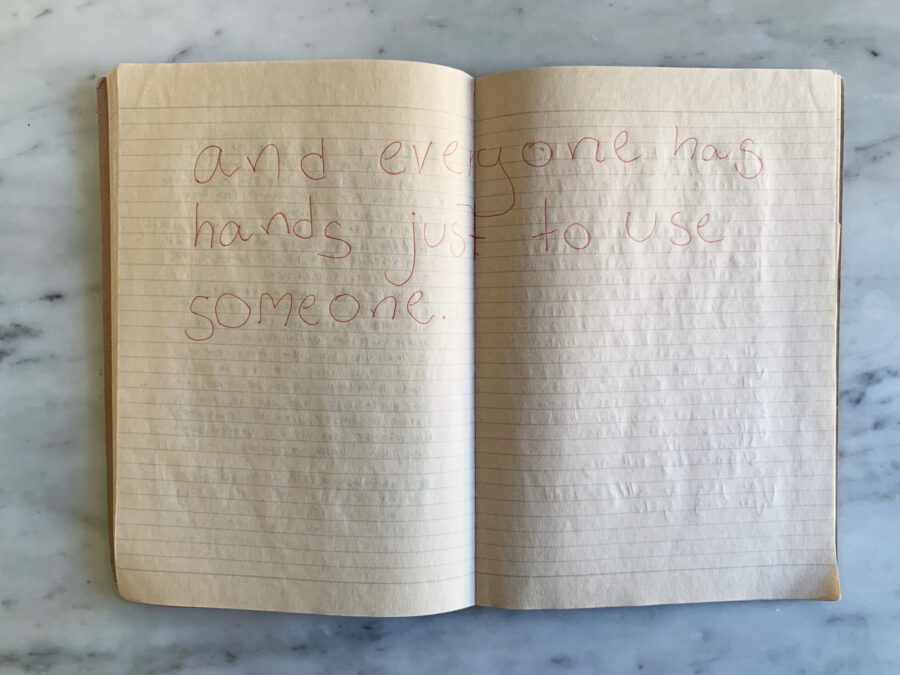 and everyone has
hands just to use
someone.